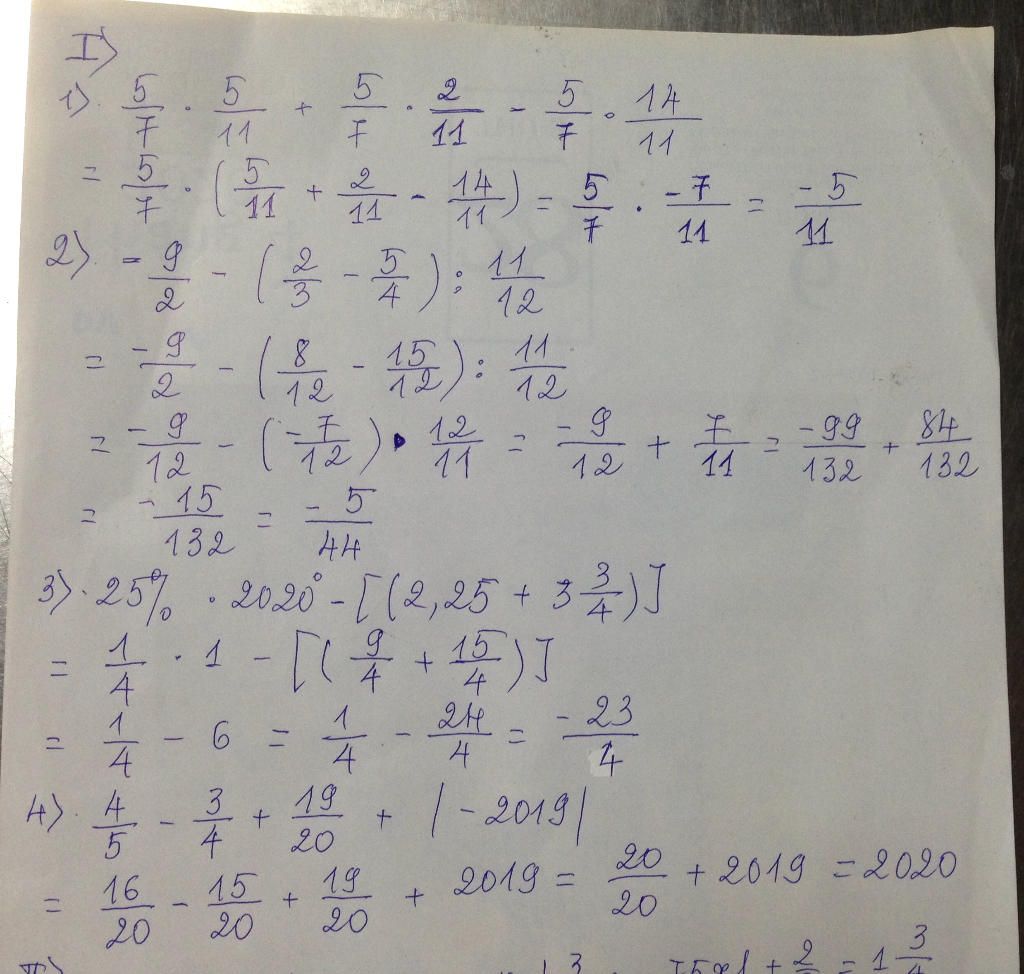 I>
1>. 5/7 · 5/11 + 5/7 · 2/11 - 5/7 · 14/11
= 5/7 · (5/11 + 2/11 - 14/11) = 5/7 · -7/11 = -5/11
2>. -9/2 - (2/3 - 5/4) : 11/12
= -9/2 - (8/12 - 15/12) : 11/12
= -9/12 - (-7/12) · 12/11 = -9/12 + 7/11 = -99/132 + 84/132
= -15/132 = -5/44
3>. 25% · 2020⁰ - [(2,25 + 3 3/4)]
= 1/4 · 1 - [(9/4 + 15/4)]
= 1/4 - 6 = 1/4 - 24/4 = -23/4
4>. 4/5 - 3/4 + 19/20 + |-2019|
= 16/20 - 15/20 + 19/20 + 2019 = 20/20 + 2019 = 2020
II>